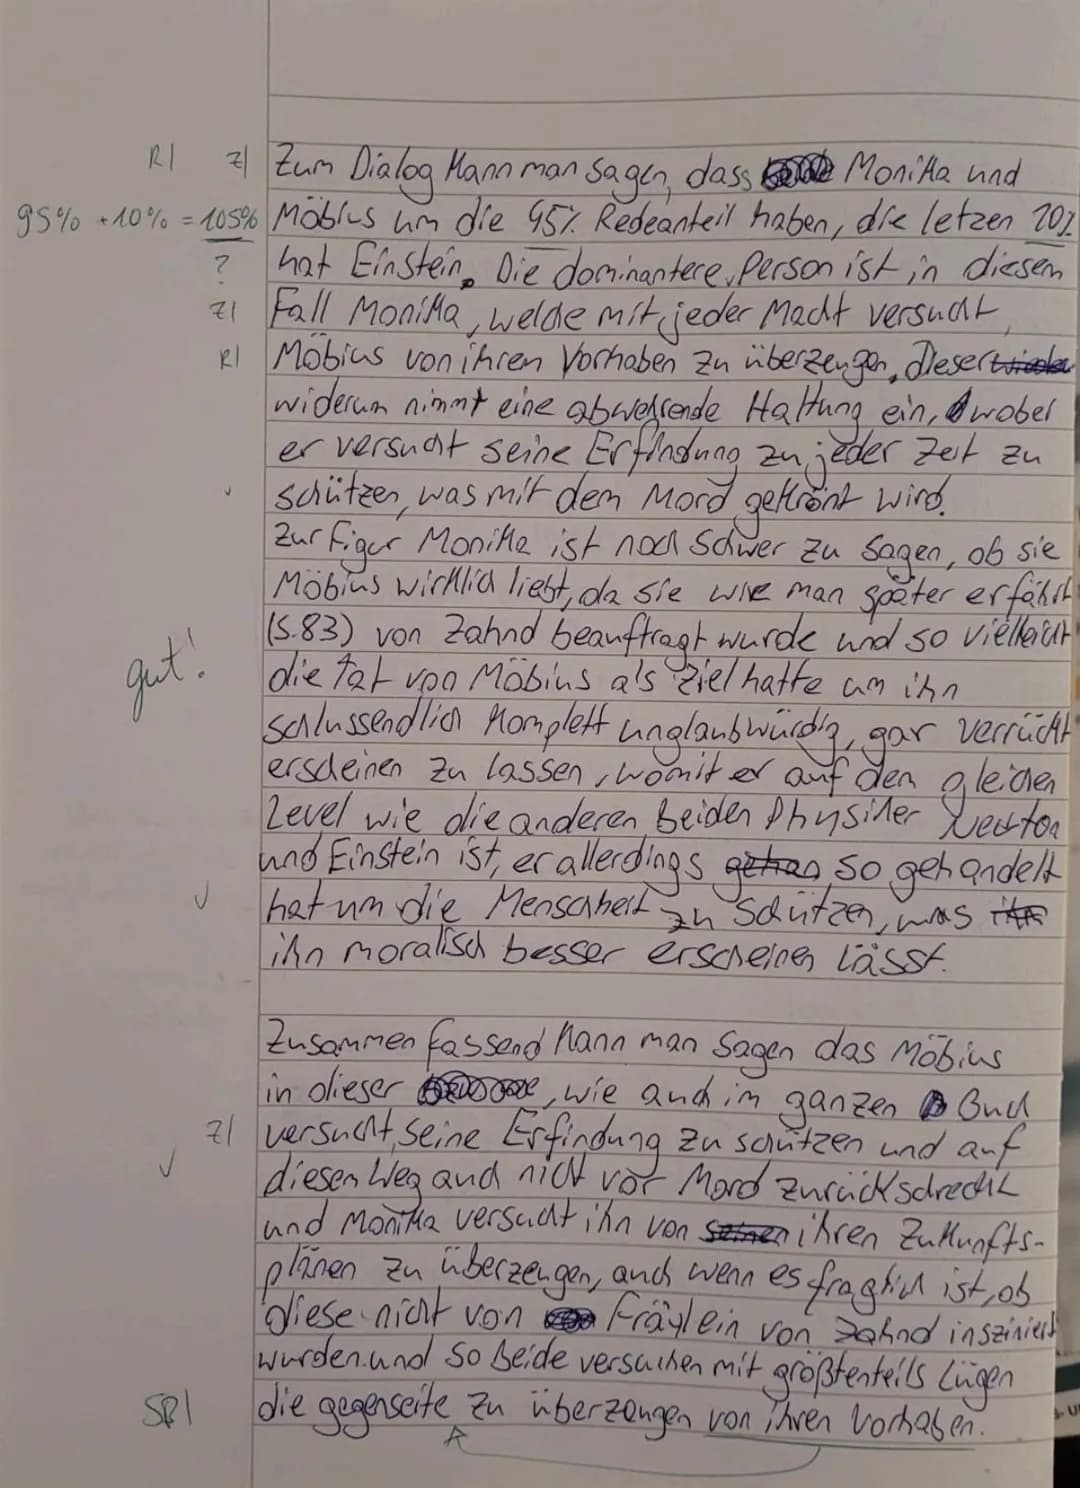 R| Z| Zum Dialog kann man sagen, dass Monika und
95% + 10% = 105% Möbius um die 95% Redeanteil haben, die letzen 10%
? hat Einstein. Die dominantere Person ist in diesem
Z| Fall Monika, welche mit jeder Macht versucht,
R| Möbius von ihren Vorhaben zu überzeugen. Dieser wieder
widerum nimmt eine abwehrende Haltung ein, wobei
er versucht seine Erfindung zu jeder Zeit zu
✓ schützen, was mit dem Mord gekrönt wird.
Zur Figur Monika ist noch schwer zu sagen, ob sie
Möbius wirklich liebt, da sie wie man später erfährt
(S.83) von Zahnd beauftragt wurde und so vielleicht
gut! die Tat von Möbius als Ziel hatte um ihn
schlussendlich komplett unglaubwürdig, gar verrückt
erscheinen zu lassen, womit er auf den gleichen
Level wie die anderen beiden Physiker Newton
und Einstein ist, er allerdings getan so gehandelt
✓ hat um die Menschheit zu schützen, was ihn
ihn moralisch besser erscheinen lässt.
Zusammenfassend kann man sagen das Möbius
in dieser , wie auch im ganzen Buch
Z| versucht, seine Erfindung zu schützen und auf
✓ diesen Weg auch nicht vor Mord zurückschreckt
und Monika versucht ihn von seinen ihren Zukunfts-
plänen zu überzeugen, auch wenn es fraglich ist, ob
diese nicht von Fräulein von Zahnd insziniert
wurden. und so beide versuchen mit größtenteils Lügen
SB| die gegenseite zu überzeugen von ihren Vorhaben.